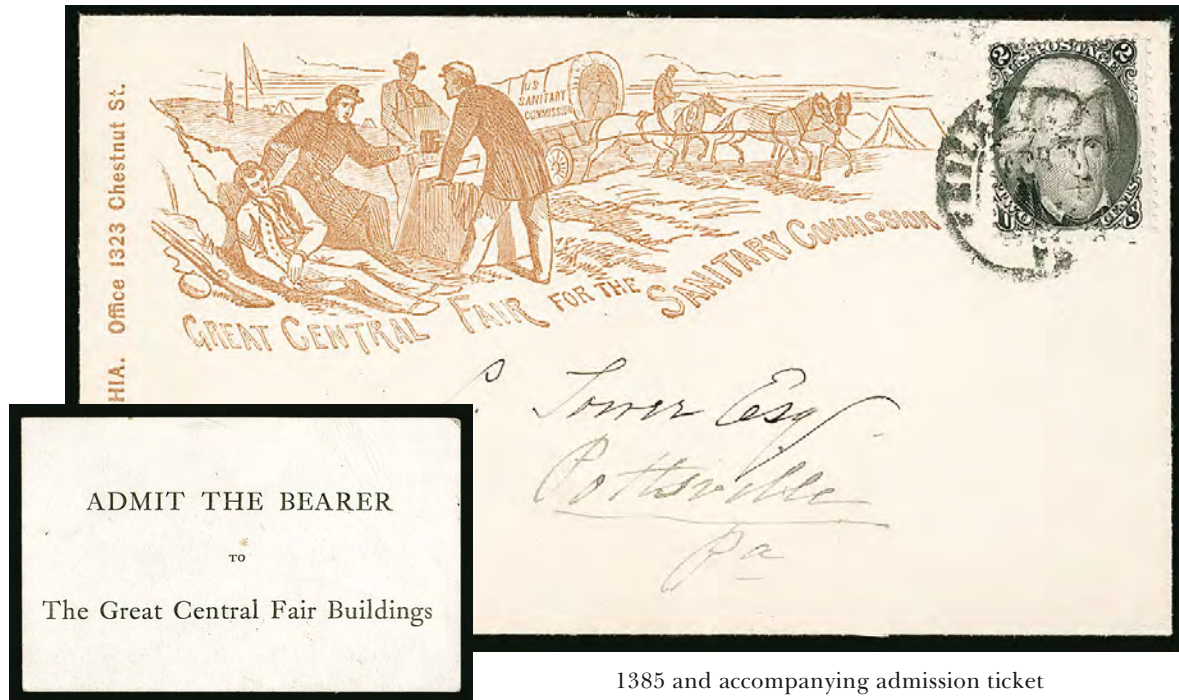 HIA. Office 1323 Chestnut St.
US
SANITARY
COMMISSION
GREAT CENTRAL FAIR FOR THE SANITARY COMMISSION
2 POSTA 2
U TWO CENTS S
PHIL
Tower Esq
Pottsville
Pa
ADMIT THE BEARER
TO
The Great Central Fair Buildings
1385 and accompanying admission ticket